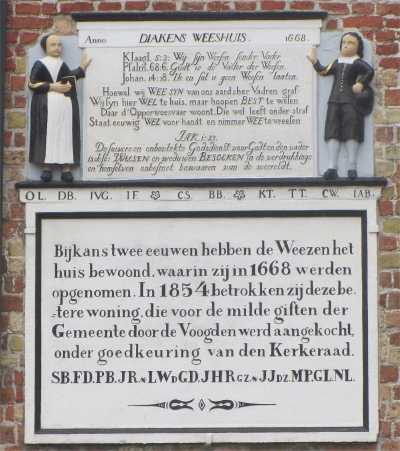 Anno DIAKENS WEESHUIS. 1668.
Klaagl. 5:3: Wij sijn Weesen sonder Vader
Psalm. 68:6. Godt is de Vader der Weesen
Johan. 14:18. Ik en sal u geen Weesen laaten.
Hoewel wij WEE SYN van ons aardsher Vadren graf
Wij syn hier WEL te huis, maar hoopen BEST te weesen
Daar d'Opperweesvaer woont. Die wel leeft onder straf
Staat eeuwig WEL voor handt en nimmer WEE te vreesen
JAK. 1:27.
De suivere en onbevlekte Godsdienst voor Godt en den vader
is dese: WEESEN en weduwen BESOEKEN in de verdrukkinge
en hemselven onbesmet bewaaren van de weereldt.
OL. DB. IVG. IF. CS. BB. KT. TT. CW. IAB.
Bijkans twee eeuwen hebben de Weezen het
huis bewoond, waarin zij in 1668 werden
opgenomen. In 1854 betrokken zij deze be-
tere woning, die voor de milde giften der
Gemeente door de Voogden werd aangekocht,
onder goedkeuring van den Kerkeraad.
SB. FD. PB. JR. LWDGD. JHRGZ. JJDZ. MP. GL. NL.